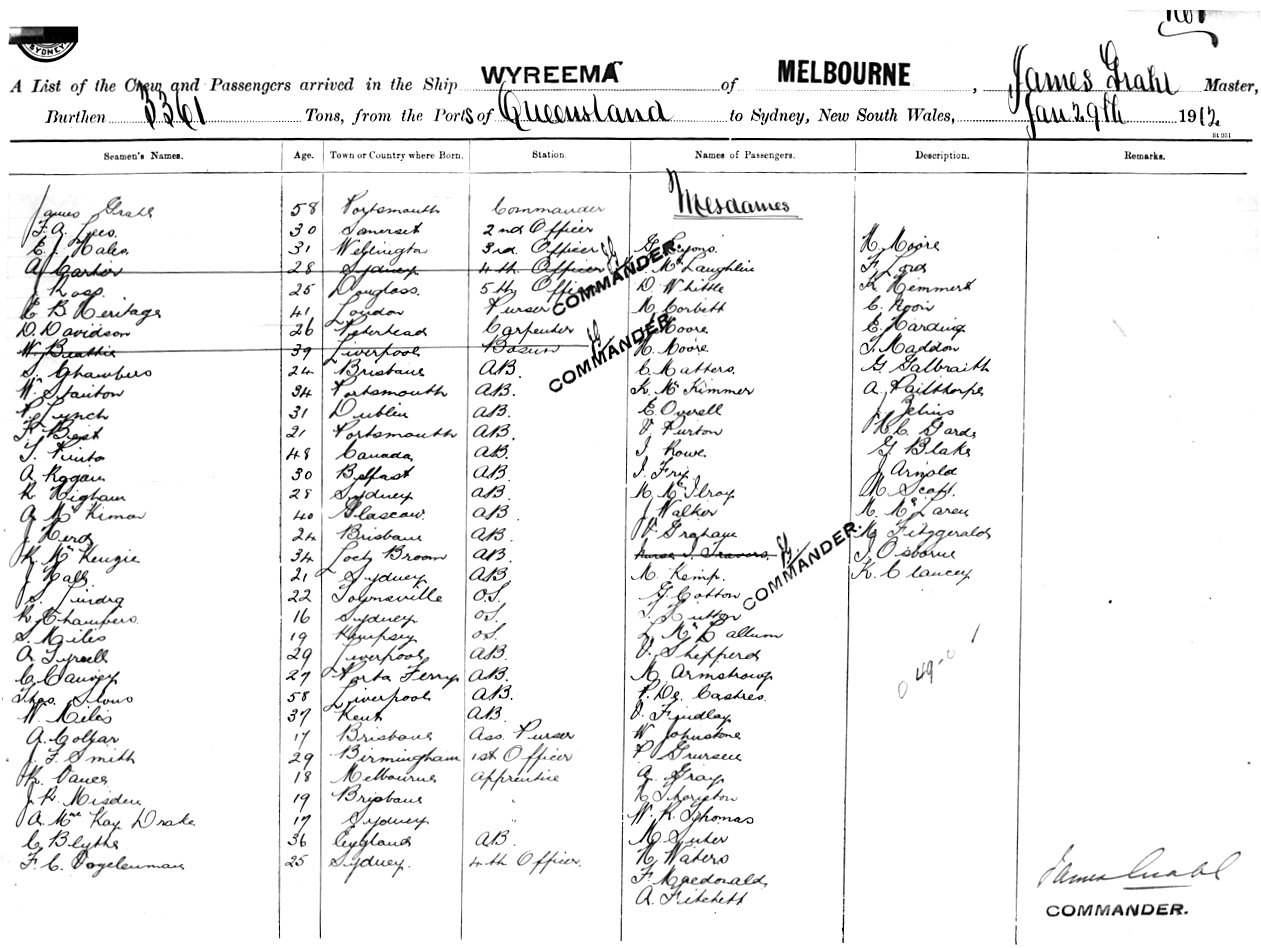 SYDNEY
A List of the Crew and Passengers arrived in the Ship WYREEMA of MELBOURNE, James Grahl Master,
Burthen 3361 Tons, from the Ports of Queensland to Sydney, New South Wales, Jan 29th 1912
Seamen's Names. Age. Town or Country where Born. Station. Names of Passengers. Description. Remarks.
Mesdames
James Grahl 58 Portsmouth Commander
F. A. Lees 30 Somerset 2nd Officer
E. J. Hales 31 Wellington 3rd Officer G. Lyons M. Moore
A Carter 28 Sydney 4th Officer McLaughlin F. Lord
J. Ross 25 Douglass 5th Officer D. Whittle K Kemmers
COMMANDER
E B Heritage 41 London Purser M. Corbett C. Noon
D. Davidson 26 Peterhead Carpenter Moore E. Harding
W. Beattie 39 Liverpool Bosun M. Moore J. Maddon
COMMANDER
S. Chambers 24 Brisbane A.B. C Matters G. Galbraith
Wm Stanton 34 Portsmouth A.B. K. McKimmer A. Pailthorpe
P. Lynch 31 Dublin A.B. E Overell J.
F. Best 21 Portsmouth A.B. V. Purton H. C. Gards
T. Pinto 48 Canada A.B. J. Rowe G. Blake
A Hogan 30 Belfast A.B. J. Fry J Arnold
R Higham 28 Sydney A.B. M. McIlroy M Scott
A McKimon 40 Glascow A.B. J Walker M. McLaren
J Herd 24 Brisbane A.B. V. Graham M. Fitzgerald
K. McKenzie 34 Loch Broom A.B. Nurse I. Travers J Osborne
COMMANDER.
J Hall 21 Sydney A.B. M. Kemp K. Clancey
S. Jindra 22 Townsville O.S. G. Cotton
R. Chambers 16 Sydney O.S. J. Hutton
S. Miles 19 Kempsey O.S. L. McCallum
A Tyrell 29 Liverpool A.B. V. Shepperd
C Canvey 27 Porta Ferry A.B. M Armstrong
Thos. Slows 58 Liverpool A.B. P. De Castres
W Miles 37 Kent A.B. V. Findlay
A Colgar 17 Brisbane Ass. Purser W Johnstone
J. F. Smith 29 Birmingham 1st Officer P
R. Vance 18 Melbourne Apprentice A. Gray
J. R. Misden 19 Brisbane " N Thorigton
A. Mac Kay Drake 17 Sydney W. R. Thomas
C Blythe 36 England A.B. M
F. C. Vogelenman 25 Sydney. 4th Officer. M Waters
F. Macdonald
A. Fitchett
49
James Grahl
COMMANDER.